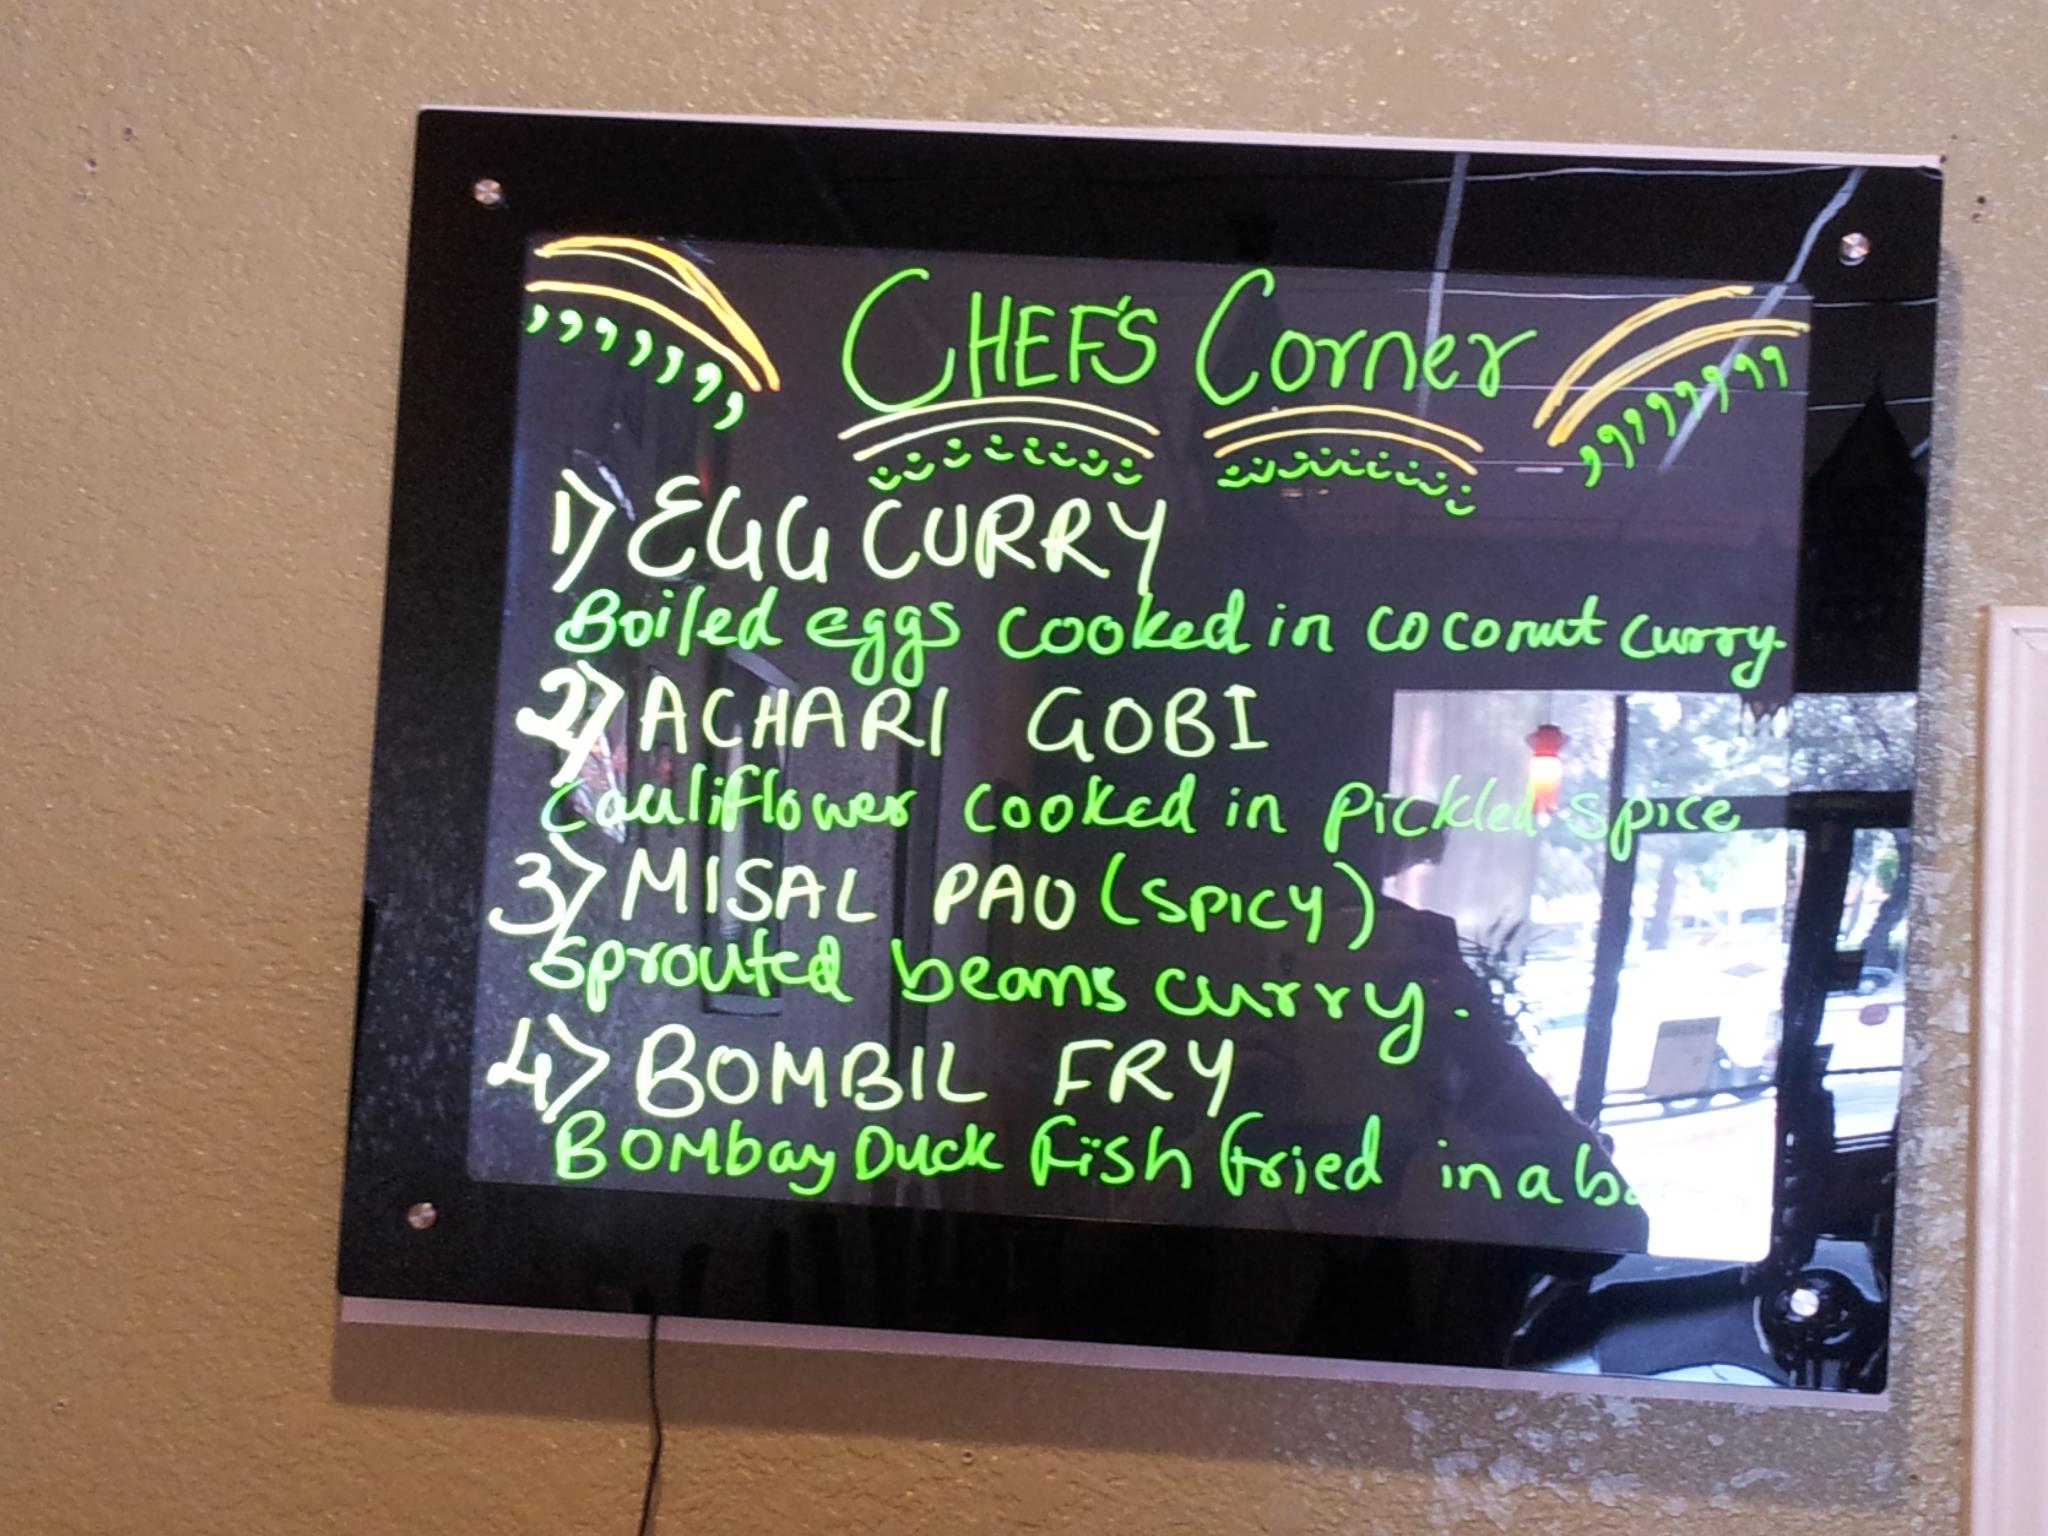 CHEF'S Corner
1) EGG CURRY
Boiled eggs cooked in coconut curry.
2) ACHARI GOBI
Cauliflower cooked in pickled spice
3) MISAL PAU (SPICY)
Sprouted beans curry.
4) BOMBIL FRY
BOMbay Duck Fish fried in a